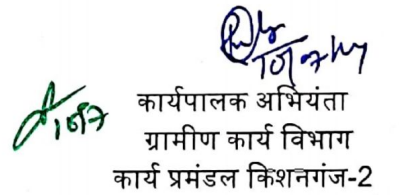 कार्यपालक अभियंता
ग्रामीण कार्य विभाग
कार्य प्रमंडल किशनगंज-2